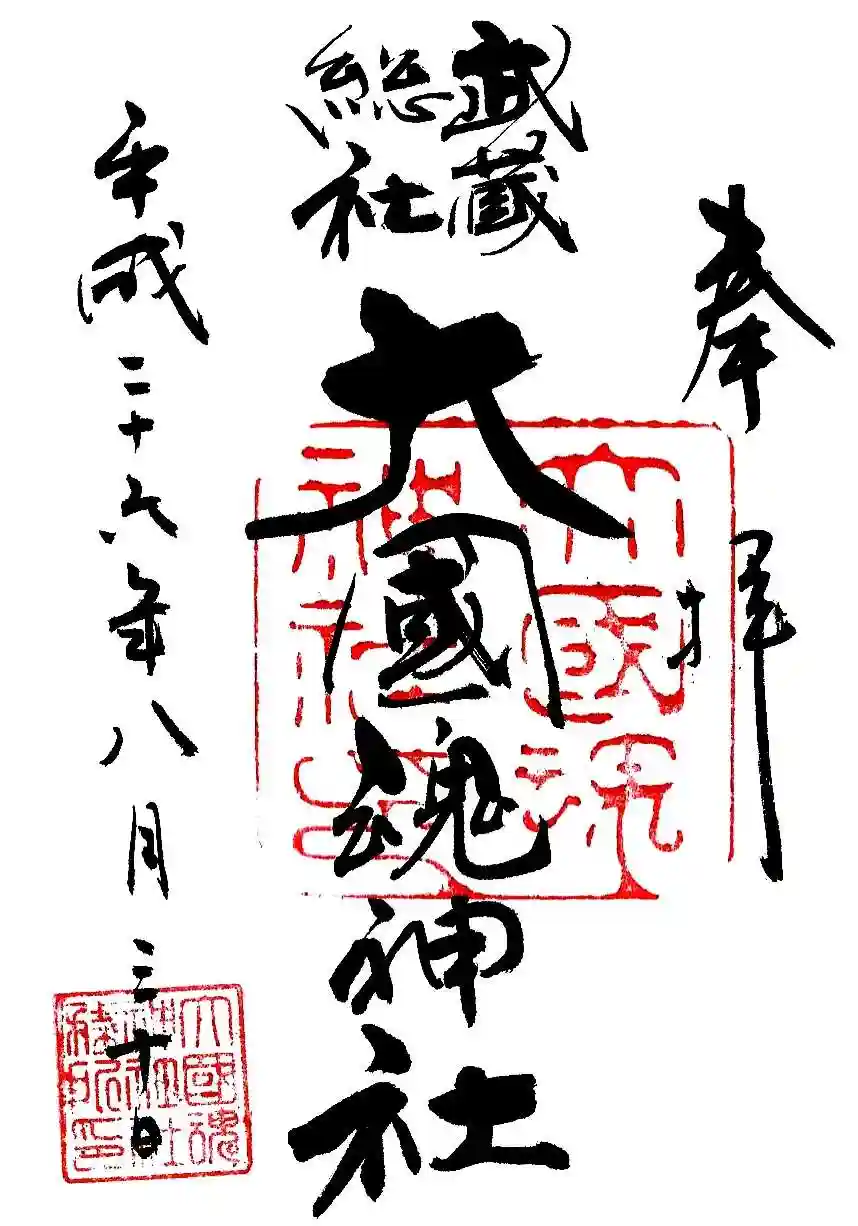 奉拝
武蔵
総社
大國魂神社
平成二十六年八月三十日
大國魂
神社印
大國魂
神社社
務所印